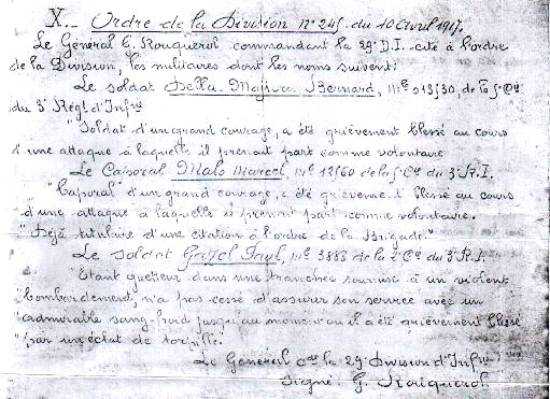 X._ Ordre de la Division n° 245 du 10 Avril 1917.
Le Général G. Rouquerol commandant la 29e D.I. cite à l'ordre
de la Division, les militaires dont les noms suivent:
Le soldat Della-Majiva Bernard, Mle 013/30, de la 5e Cie
du 3e Régt d'Infrie
"Soldat d'un grand courage, a été grièvement blessé au cours
d'une attaque à laquelle il prenait part comme volontaire
Le Caporal Malo Marcel, Mle 12/60 de la 5e Cie du 3e R.I.
"Caporal d'un grand courage, a été grièvement blessé au cours
d'une attaque à laquelle il prenait part comme volontaire.
"Déjà titulaire d'une citation à l'ordre de la Brigade."
Le soldat Paul, Mle 3883 de la 2e Cie du 3e R.I.
"Etant guetteur dans une tranchée soumise à un violent
"bombardement, n'a pas cessé d'assurer son service avec un
"admirable sang-froid jusqu'au moment où il a été grièvement blessé
"par un éclat de torpille.
Le Général Cdt la 29e Division d'Infrie
Signé: G. Rouquerol.